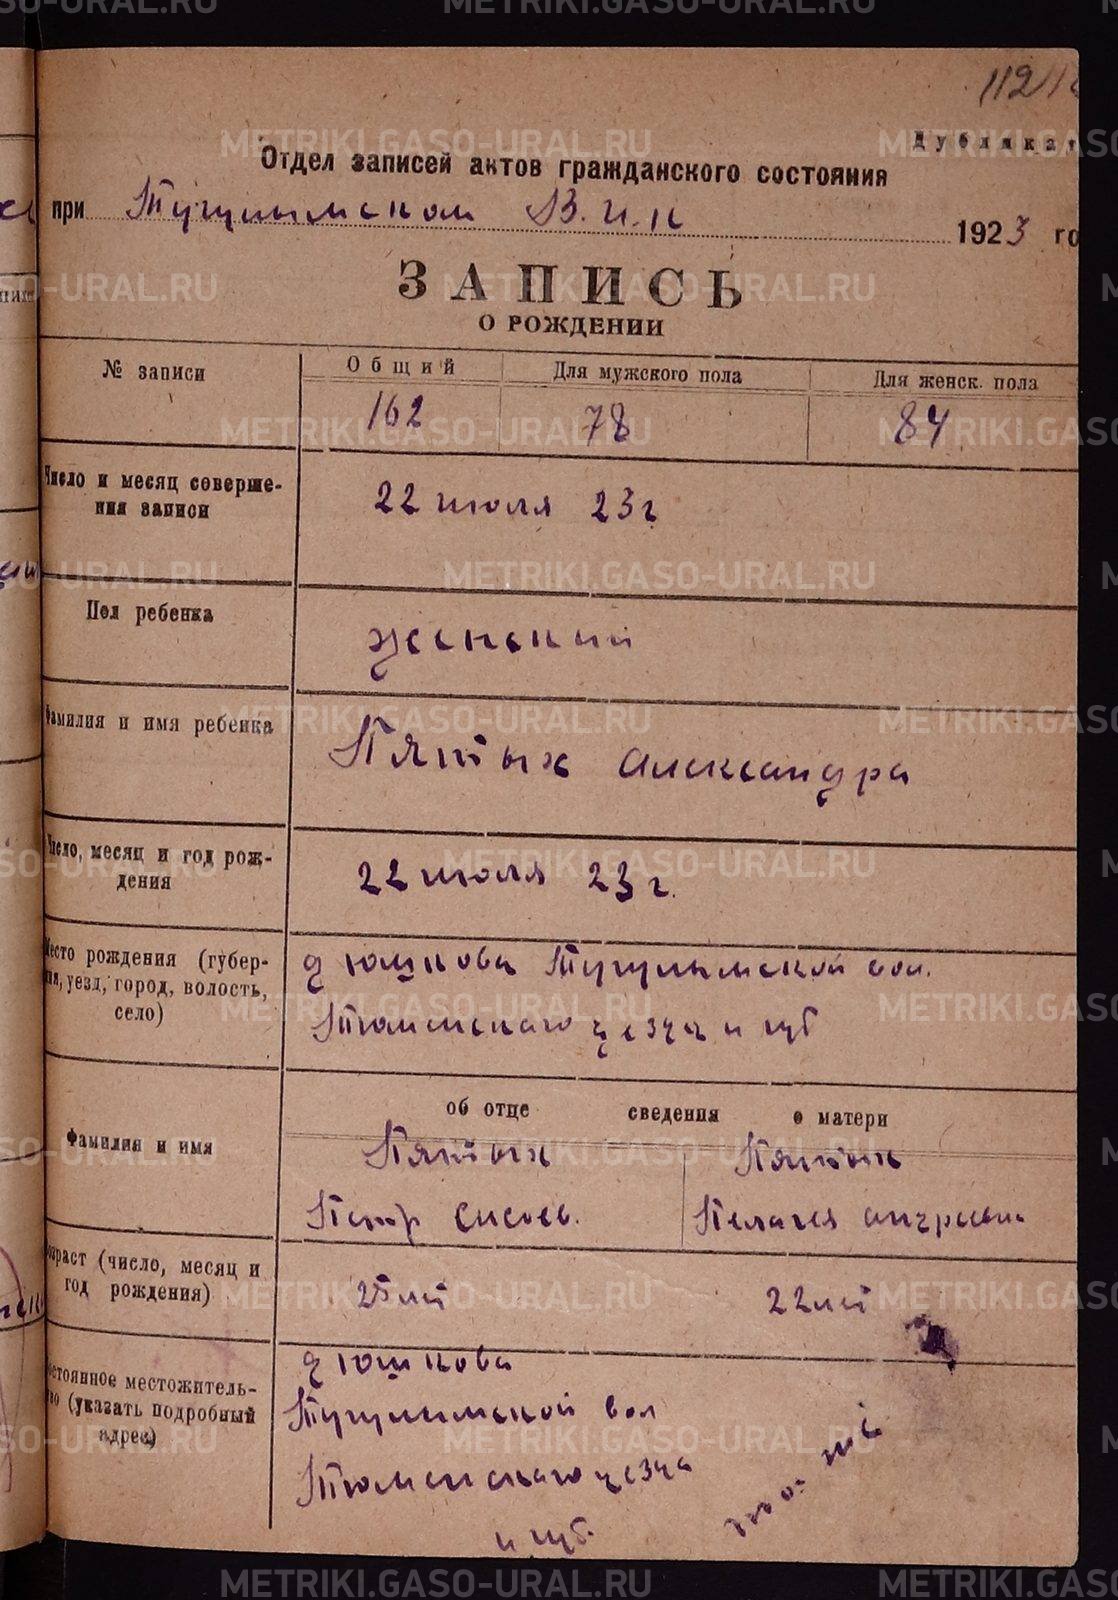 112
Дубликат
Отдел записей актов гражданского состояния
при Тугулымском В.И.К 1923 го
ЗАПИСЬ
О РОЖДЕНИИ
№ записи
Общий Для мужского пола Для женск. пола
162 78 84
Число и месяц соверше-
ния записи
22 июля 23 г
Пол ребенка
женский
Фамилия и имя ребенка
Пятых Александра
Число, месяц и год рож-
дения
22 июля 23 г.
Место рождения (губер-
ния, уезд, город, волость,
село)
д Юшкова Тугулымской вол.
Тюменскаго уезда и губ
об отце сведения о матери
Фамилия и имя
Пятых Пятых
Петр Сисоев. Пелагея Андреевна
Возраст (число, месяц и
год рождения)
25 лет 22 лет
Постоянное местожитель-
ство (указать подробный
адрес)
д Юшкова
Тугулымской вол
Тюменскаго уезда
и губ.
то же
METRIKI.GASO-URAL.RU